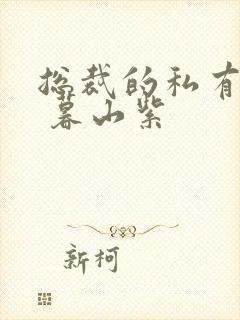 总裁的私有
暮山紫
新柯